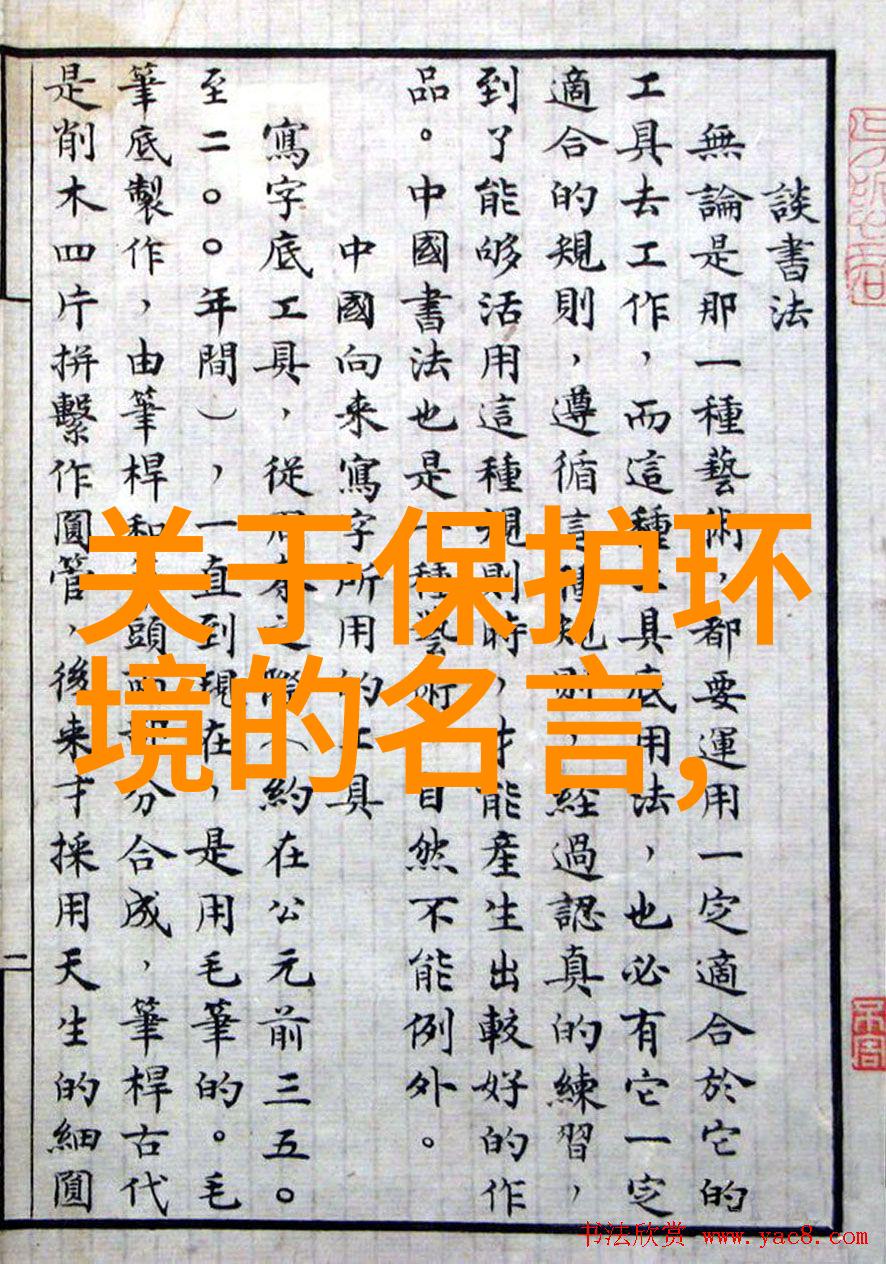 談書法
無論是那一種藝術，都要運用一定適合於它的
工具去工作，而這種工具底用法，也必有它一定
適合的規則，遵循這種規則，經過認真的練習，
到了能够活用這種規則時，才能產生出較好的作
品。中國書法也是一種藝術自然不能例外。
中國向來寫字所用的工具
寫字底工具，從之際（約在公元前三五〇
至二〇〇年間），一直到現在，是用毛筆的。毛
筆底製作，由筆桿和筆頭兩部分合成，筆桿古代
是削木四片拼繫作圓管，後來才採用天生的細圓
二
关于保护环
境的名言,
书法欣赏 www.yac8.com